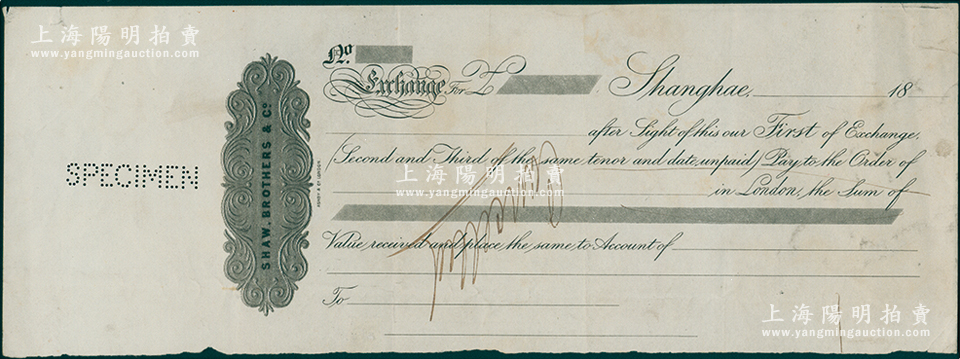 上海陽明拍賣
www.yangmingauction.com
No.
Exchange For £
Shanghae, 18
after Sight of this our First of Exchange,
(Second and Third of the same tenor and date, unpaid) Pay to the Order of
in London, the Sum of
Value received and place the same to Account of
To
SHAW, BROTHERS & Co.
SPECIMEN
上海陽明拍賣
www.yangmingauction.com
上海陽明拍賣
www.yangmingauction.com